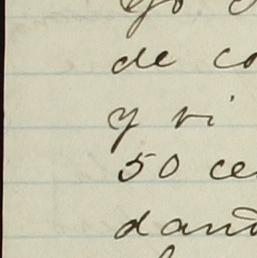 yo
de co
y vi
50 ce
dand